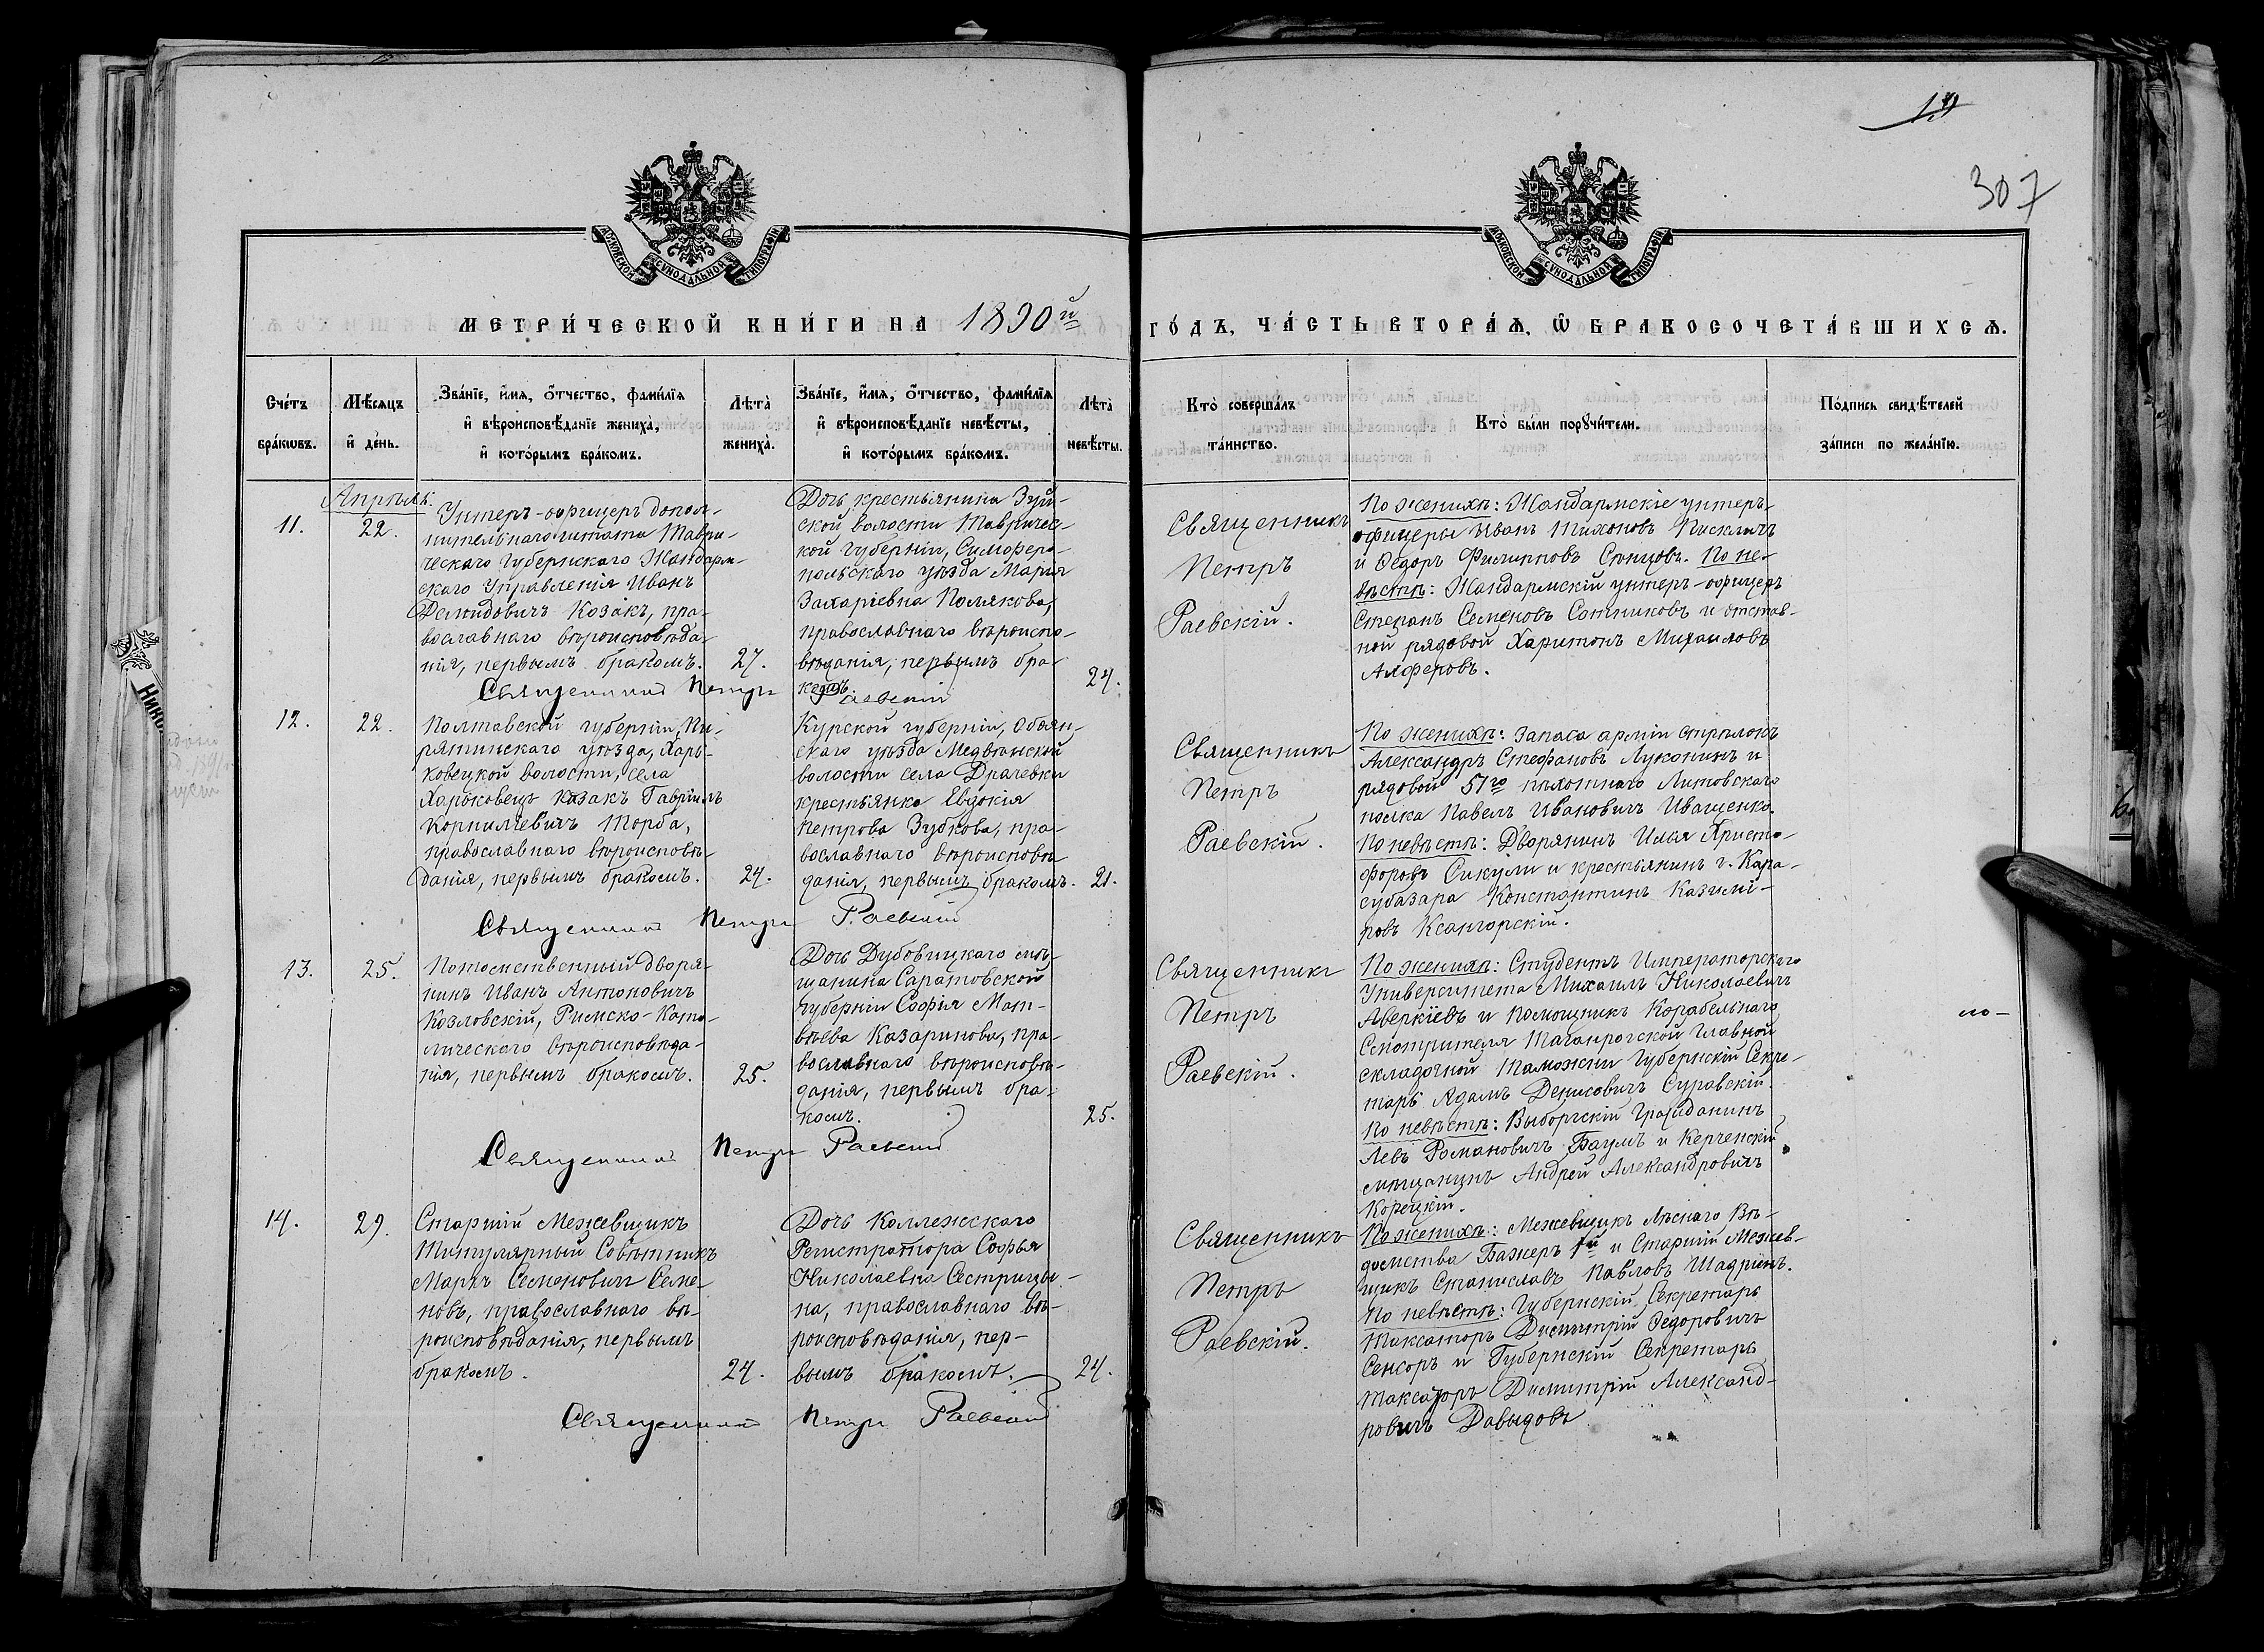 307
МОСКОВСКОЙ СѴНОДАЛЬНОЙ ТИПОГРАФІИ
МОСКОВСКОЙ СѴНОДАЛЬНОЙ ТИПОГРАФІИ
МЕТРИ́ЧЕСКОЙ КНИ́ГИ НА 1890й
ГО́ДЪ, ЧА́СТЬ ВТОРА́Ѧ, Ѽ БРАКОСОЧЕТА́ВШИХСѦ.
Сче́тъ бра́кωвъ.
Мѣ́сяцъ и҆ де́нь.
Зва́нїе, и҆́мя, ѻ҆́тчество, фами́лїя
и҆ вѣроисповѣ́данїе жениха̀,
и҆ кото́рымъ бра́комъ.
Лѣта̀ жениха̀.
Зва́нїе, и҆́мя, ѻ҆́тчество, фами́лїя
и҆ вѣроисповѣ́данїе невѣ́сты,
и҆ кото́рымъ бра́комъ.
Лѣта̀ невѣ́сты.
Кто̀ соверша́лъ та́инство.
Кто̀ бы́ли порꙋчи́тели.
По́дпись свидѣ́телей за́писи по жела́нїю.
Апрѣль.
11.
22.
Унтеръ-офицеръ допол-
нительнаго штата Таври-
ческаго Губернскаго Жандарм-
скаго Управленія Иванъ
Демидовичъ Козакъ, пра-
вославнаго вѣроисповѣда-
нія, первымъ бракомъ.
27.
Дочь крестьянина Зуй-
ской волости Тавричес-
кой губерніи, Симферо-
польскаго уѣзда Марія
Захаріевна Полякова,
православнаго вѣроиспо-
вѣданія, первымъ бра-
комъ.
24.
Священникъ
Петръ
Раевскій.
По женихѣ: Жандармскіе унтеръ-
офицеры Иванъ Тихоновъ Пискличъ
и Ѳедоръ Филипповъ Сѣнцовъ. По не-
вѣстѣ: Жандармскій унтеръ-офицеръ
Степанъ Семеновъ Сотниковъ и отстав-
ной рядовой Харитонъ Михаиловъ
Алферовъ.
Священникъ Петръ Раевскій
12.
22.
Полтавской губерніи, Пи-
рятинскаго уѣзда, Харь-
ковецкой волости, села
Харьковецъ козакъ Гавріилъ
Корниліевичъ Торба,
православнаго вѣроисповѣ-
данія, первымъ бракомъ.
24.
Курской губерніи, Обоян-
скаго уѣзда Медвѣнской
волости села Драчевки
крестьянка Евдокія
Петрова Зубкова, пра-
вославнаго вѣроисповѣ-
данія, первымъ бракомъ.
21.
Священникъ
Петръ
Раевскій.
По женихѣ: Запаса арміи стрѣлокъ
Александръ Стефановъ Луконинъ и
рядовой 51го пѣхотнаго Литовскаго
полка Павелъ Ивановичъ Иващенко.
По невѣстѣ: Дворянинъ Илья Христо-
форовъ Сикули и крестьянинъ г. Кара-
субазара Константинъ Казимі-
ровъ Ксангорскій.
Священникъ Петръ Раевскій
13.
25.
Потомственный дворя-
нинъ Иванъ Антоновичъ
Козловскій, Римско-Като-
лическаго вѣроисповѣда-
нія, первымъ бракомъ.
25.
Дочь Дубовицкаго мѣ-
щанина Саратовской
губерніи Софія Мат-
вѣева Казаринова, пра-
вославнаго вѣроисповѣ-
данія, первымъ бра-
комъ.
25.
Священникъ
Петръ
Раевскій.
По женихѣ: Студентъ Императорскаго
Университета Михаилъ Николаевичъ
Аверкіевъ и Помощникъ Корабельнаго
Смотрителя Таганрогской Главной
складочной Таможни Губернскій Секре-
тарь Адамъ Денисовичъ Суравскій.
По невѣстѣ: Выборгскій Гражданинъ
Левъ Романовичъ Баумъ и Керченскій
мѣщанинъ Андрей Александровичъ
Корецкій.
Священникъ Петръ Раевскій
14.
29.
Старшій Межевщикъ
Титулярный Совѣтникъ
Маркъ Семеновичъ Семе-
новъ, православнаго вѣ-
роисповѣданія, первымъ
бракомъ.
24.
Дочь Коллежскаго
Регистратора Софья
Николаевна Сестрицы-
на, православнаго вѣ-
роисповѣданія, пер-
вымъ бракомъ.
24.
Священникъ
Петръ
Раевскій.
По женихѣ: Межевщикъ Лѣснаго Вѣ-
домства Бажеръ 1й и Старшій Межев-
щикъ Станиславъ Павловъ Шадринъ.
По невѣстѣ: Губернскій Секретарь
Таксаторъ Димитрій Ѳедоровичъ
Сенсоръ и Губернскій Секретарь
Таксаторъ Димитрій Александ-
ровичъ Давыдовъ.
Священникъ Петръ Раевскій